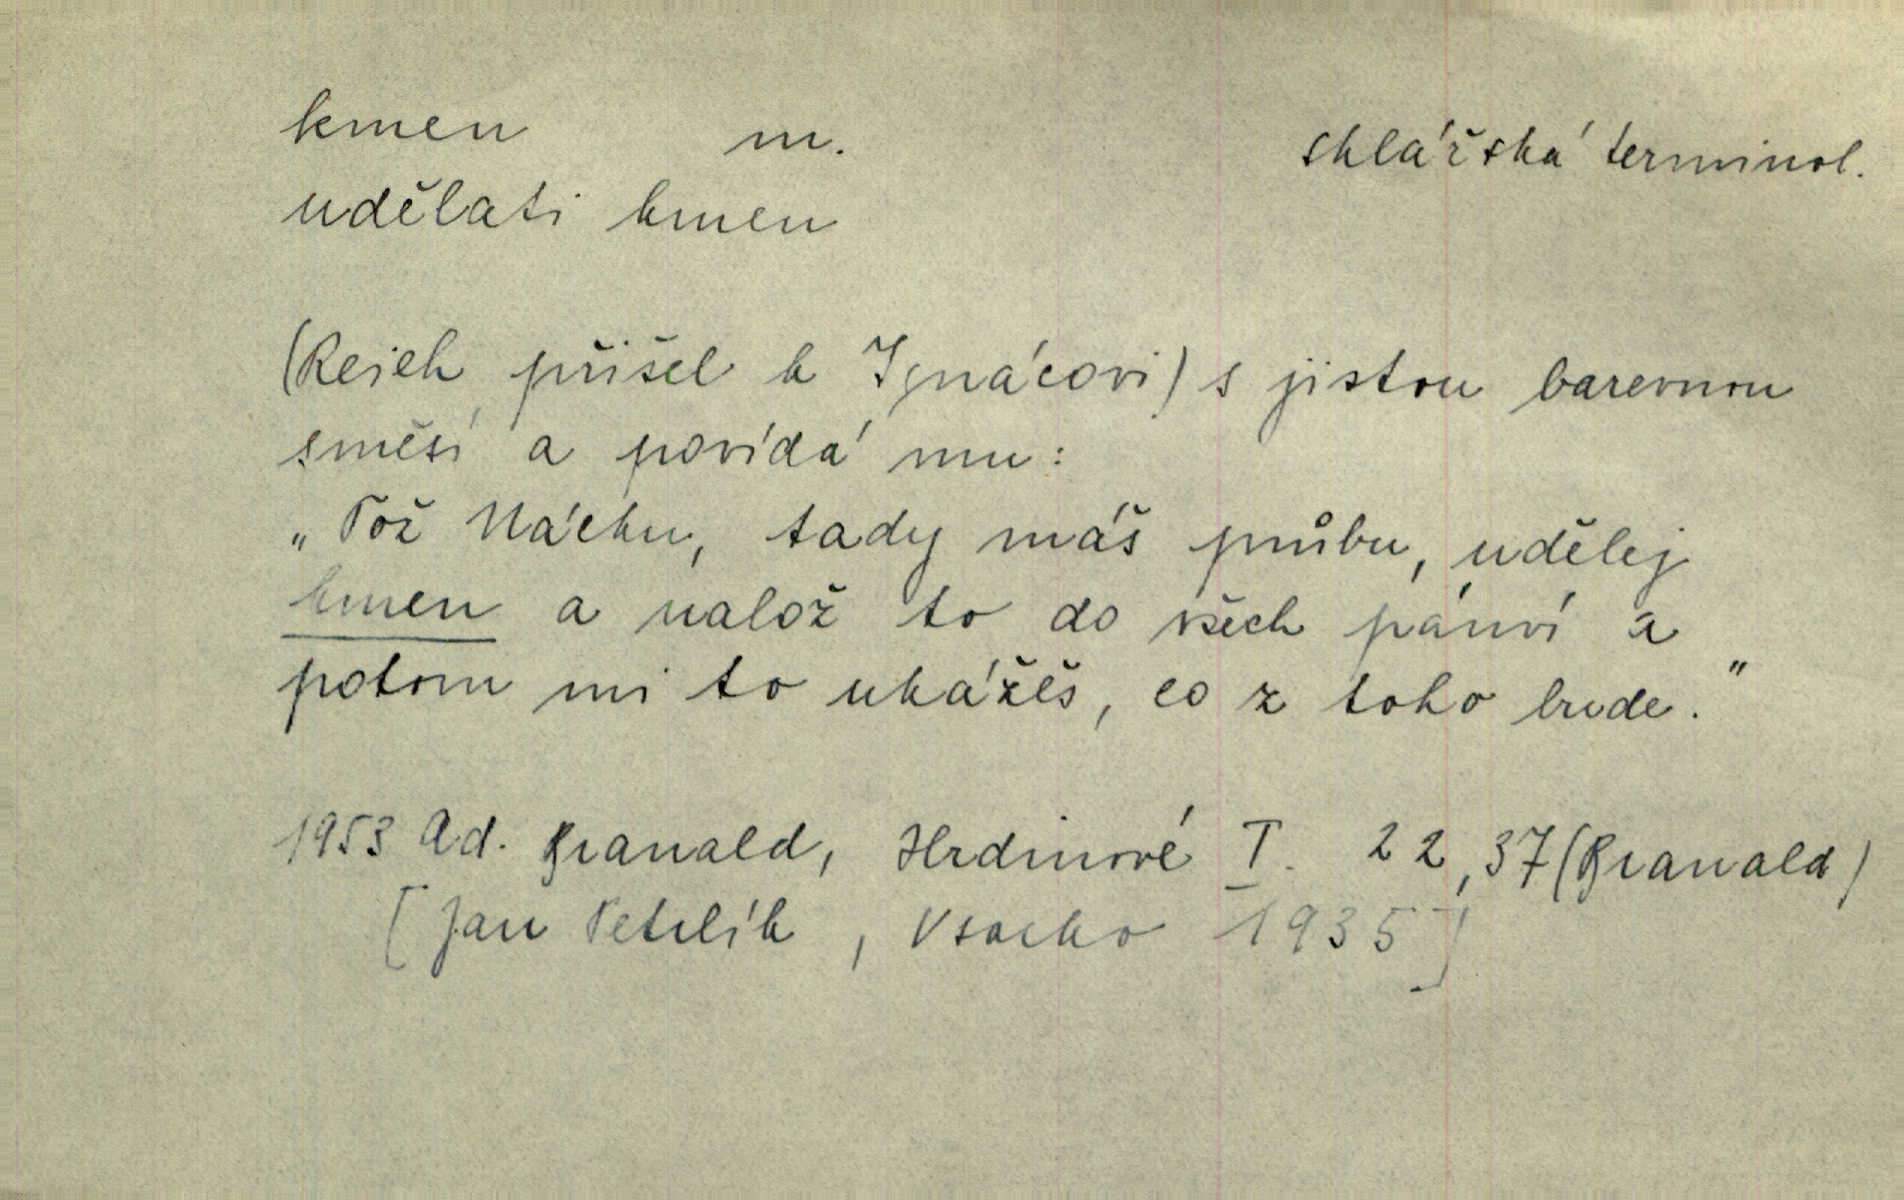 kmen m. sklářská terminol.
udělati kmen
(Reich přišel k Ignácovi) s jistou barevnou
směsí a povídá mu:
„Tož Nácku, tady máš průbu, udělej
kmen a nalož to do všech pánví a
potom mi to ukážěš, co z toho bude."
1953 Ad. Branald, Hrdinové I. 22, 37 (Branald)
[Jan Petrlík, Vsacko 1935]